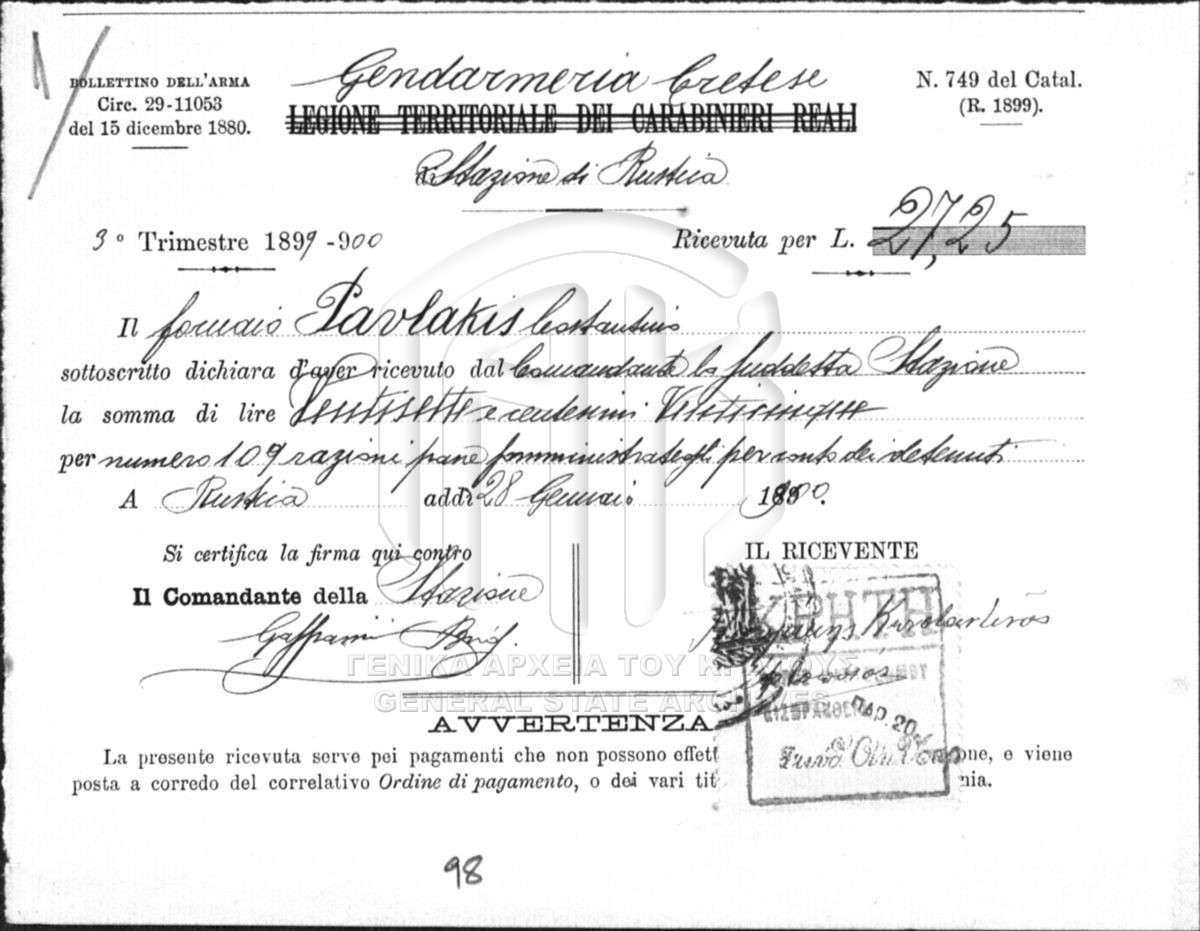 BOLLETTINO DELL'ARMA
Circ. 29-11053
del 15 dicembre 1880.
Gendarmeria Cretese
LEGIONE TERRITORIALE DEI CARABINIERI REALI
di Stazione di Rustica
N. 749 del Catal.
(R. 1899).
3° Trimestre 1899-900
Ricevuta per L. 27,25
Il fornaio Pavlakis Costantino
sottoscritto dichiara d'aver ricevuto dal Comandante la suddetta Stazione
la somma di lire Ventisette e centesimi Venticinque
per numero 109 razioni pane somministrategli per conto dei detenuti
A Rustica addì 28 Gennaio 1900.
Si certifica la firma qui contro
Il Comandante della Stazione
IL RICEVENTE
ΚΡΗΤΗ
ΓΕΝΙΚΑ ΑΡΧΕΙΑ ΤΟΥ ΚΡΑΤΟΥΣ
GENERAL STATE ARCHIVES
AVVERTENZA
La presente ricevuta serve pei pagamenti che non possono effett one, e viene
posta a corredo del correlativo Ordine di pagamento, o dei vari tit nia.
98